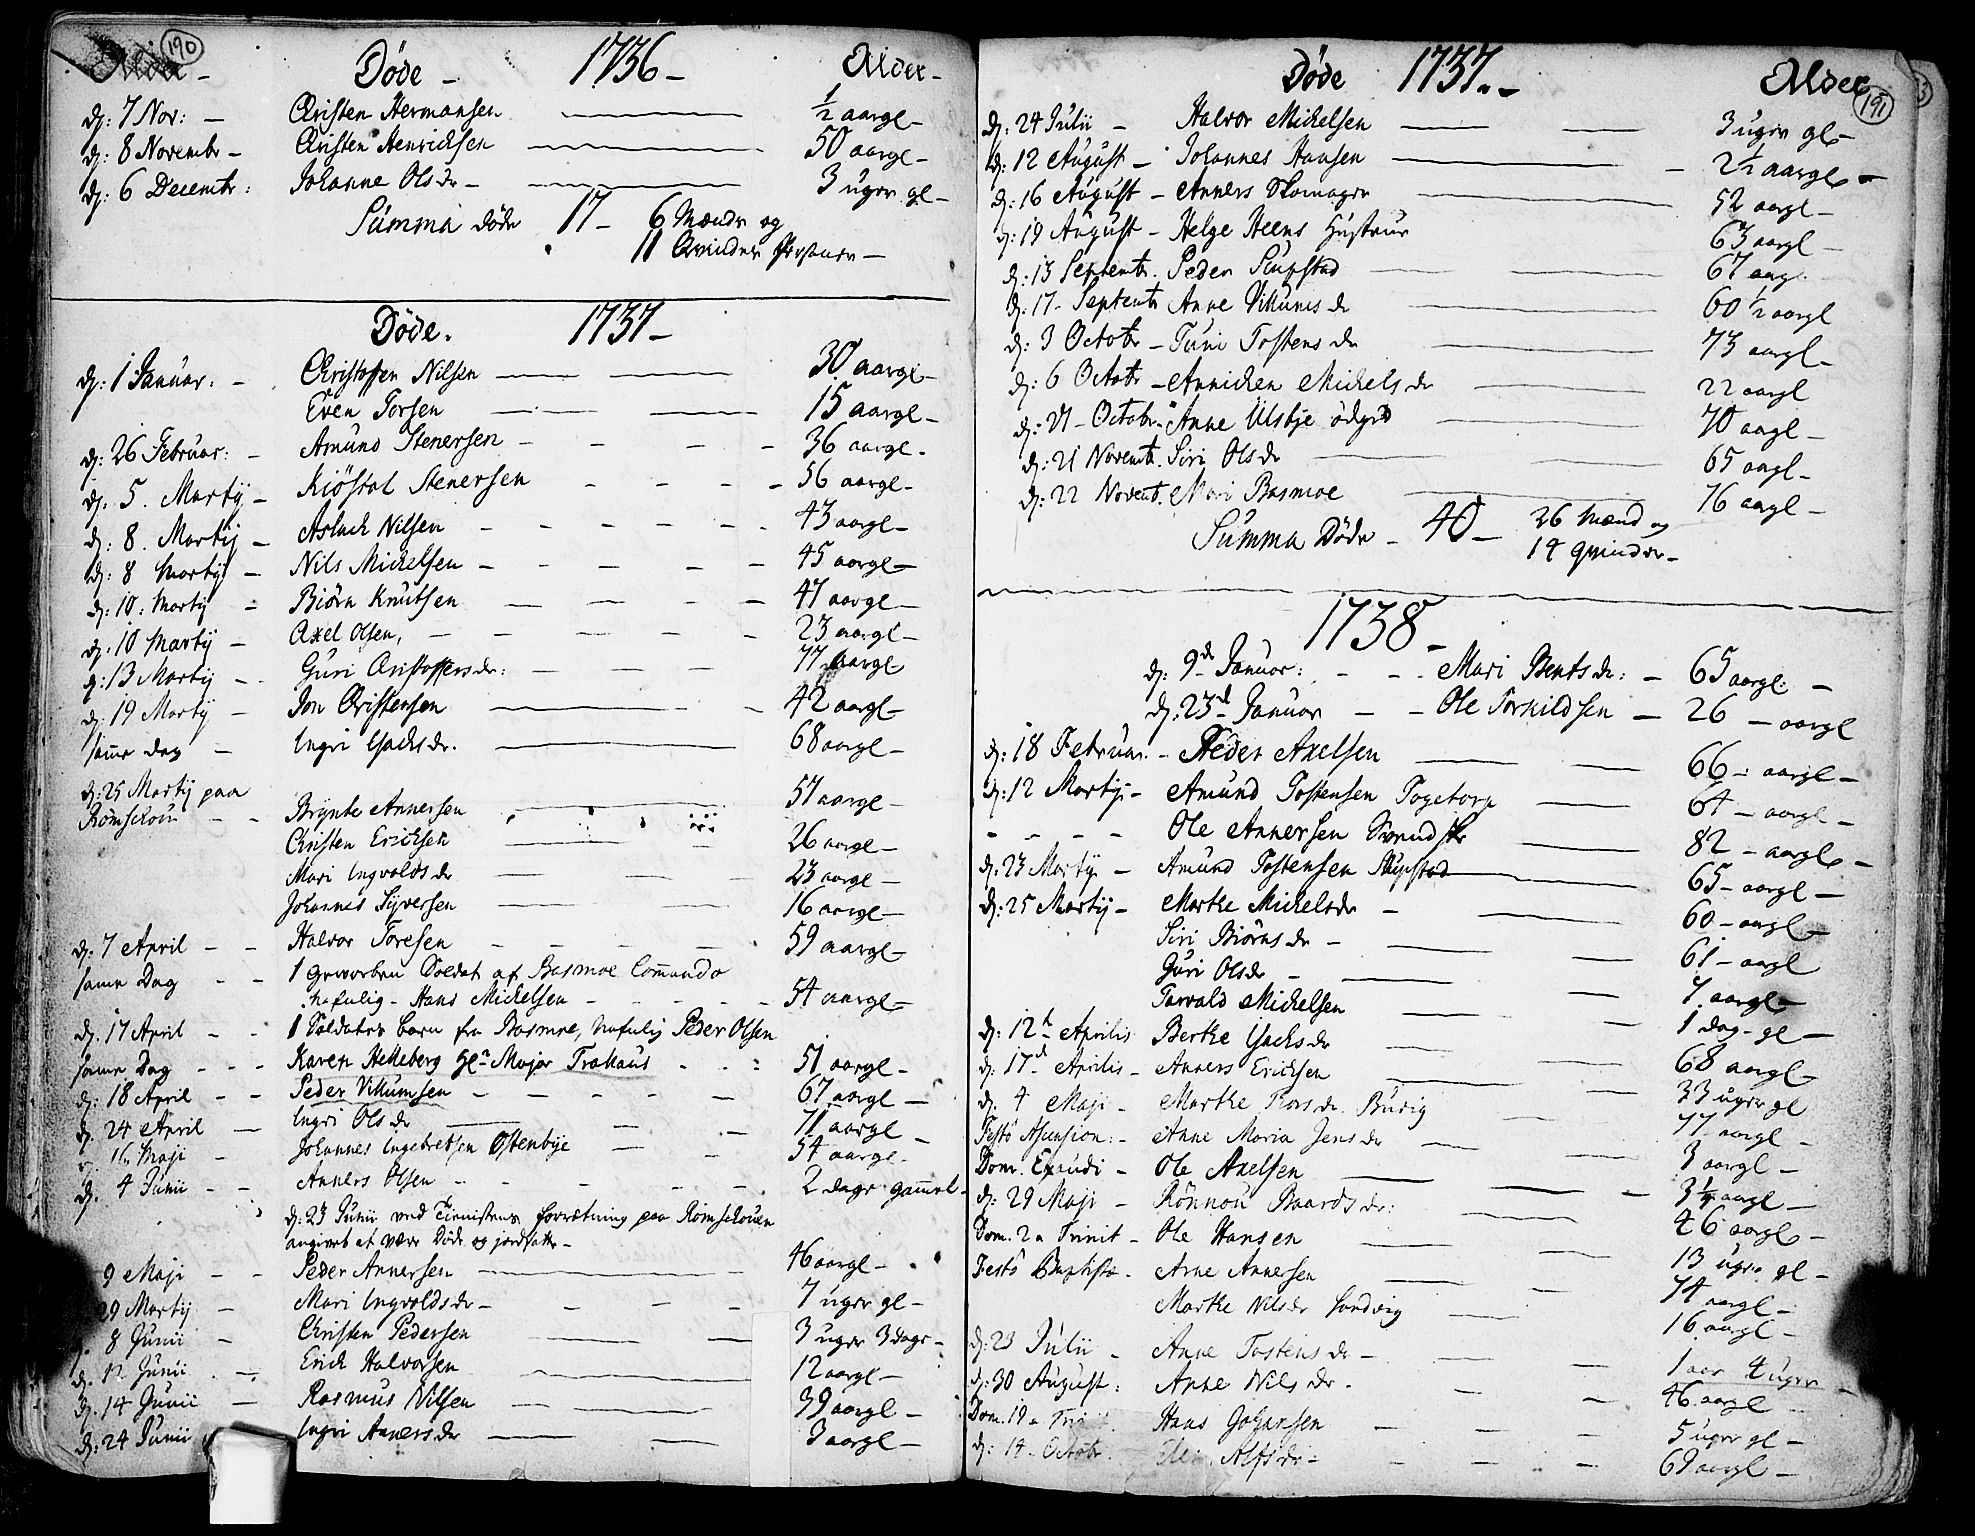 190
Døde - 1736 - Alder -
d: 7 Nov: - Christen Hermansen ½ aargl -
d: 8 Novembr - Christen Henrichsen 50 aargl -
d: 6 Decembr: Johanne Olsdr - 3 uger gl -
Summa døde 17 - 6 Mænde og
11 Qvinder Personer -
Døde. 1737 -
d: 1 Januar: - Christoffen Nilsen 30 aargl -
Even Torsen 15 aargl -
d: 26 Februar: - Amund Stenersen - 36 aargl -
d. 5. Martij - Kiöstol Stenersen - 56 aargl -
d: 8. Martij - Aslach Nilsen - 43 aargl -
d: 8 Martij - Nils Michelsen - 45 aargl -
d: 10: Martij - Biörn Knutsen - 47 aargl -
d: 10 Martij - Axel Olsen, - 23 aargl -
d: 13 Martij - Guri Christoffersdr: - 77 aargl
d: 19 Martij - Jon Christensen - 42 aargl -
samme dag - Ingri Isachsdr. 68 aargl -
d: 25 Martij paa
Römschoun - - Brynte Annersen 57 aargl -
Christen Erichsen 26 aargl -
Mari Ingvolds dr 23 aargl -
Johannes Syversen 16 aargl -
d: 7 April - - Halvor Toresen - 59 aargl -
samme Dag - - 1 geworben Soldat af Basmoe Commando
nafnlig - Hans Michelsen - 54 aargl -
d: 17 April - - 1 Soldater barn fra Basmoe, nafnlig Peder Olsen
samme Dag - - - Karen Helleberg Gl: Major Trollaus - 51 aargl -
d: 18 April - - Peder Villumsen - 67 aargl -
d: 24 April - Ingri Ols dr 71 aargl -
d. 16 Maji - Johannes Ingebretsen Ostenbye - 54 aargl -
d. 4 Junii - - Anners Olsen - 2 dage gammel -
d: 23 Junii ved Tienistens forretning paa Römschouen
angiveb at være Döde og jordsatte -
9 Maji - - Peder Annersen 46 aargl -
29 Martij - Mari Ingvoldsdr - 7 uger gl -
8 Junii - Christen Pedersen 3 uger 3 dage -
d. 12 Junii - Erich Halvorsen 12 aargl -
d. 14 Junii - Rasmus Nilsen 39 aargl -
d: 24 Junii Ingri Anners dr 3 aargl -
191
Døde 1737. - Alder
d: 24 Julii - Halvor Michelsen 3 uger gl -
d: 12 August - Johannes Hansen 2½ aargl -
d: 16 August - Anners Skomager 52 aargl -
d: 19 August - Helge Heens Hustrue 63 aargl -
d: 13 Septembr. Peder Slupstad 67 aargl.
d: 17 - Septembr Anne Villums dr 60½ aargl
d: 3 Octobr - Turi Tostens dr 73 aargl -
d: 6 Octobr - Annichen Michels dr 22 aargl
d: 21 - Octobr. Anne Ulsbye ödegrd 70 aargl -
d: 21 Novemb. Siri Ols dr 65 aargl -
d: 22 Novemb. Mari Basmoe 76 aargl -
Summa Døde - 40 - 26 Mænd og
14 qvinder -
1738 -
d: 9d Januar: - - - Mari Bents dr: - 65 aargl: -
d: 23d Januar - - Ole Torkildsen - 26 - aargl
d: 18 Februar. - Peder Axelsen 66 - aargl -
d: 12 Martij - Amund Tostensen Togetorp 64 - aargl -
- - - - Ole Annersen 82 - aargl -
d: 23 Martij - Amund Tostensen Slupstad 65 - aargl -
d: 25 Martij - Marthe Michelsdr - 60 - aargl -
Siri Biörns dr - 61 - aargl
Guri Olsdr - 7 aargl -
Torvald Michelsen 1 dag - gl -
d: 12t Aprilis Berthe Isachs dr 68 aargl -
d: 17d Aprilis - Anners Erichsen 33 uger gl
d. 4 Maji - Marthe Tors dr. Burig 77 aargl -
Festo Ascension: - Anne Maria Jens dr 3 aargl -
Dom. Exaudi - Ole Axelsen 3½ aargl -
d: 29 Maji - Rönnou Baards dr: 46 aargl -
Dom. 2a Trinit - Ole Hansen 13 uger gl -
Festo Baptistæ - Arne Annersen 74 aargl -
Marthe Nilsdr Sandvig 16 aargl -
d: 23 Julii - Anne Tostens dr - 1 aar 4 uger -
d: 30 August: Anne Nils dr - 46 aargl -
Dom. 19a Trinit Hans Gohansen 5 uger gl -
d: 14 - Octobr. Alfs dr - 69 aargl -